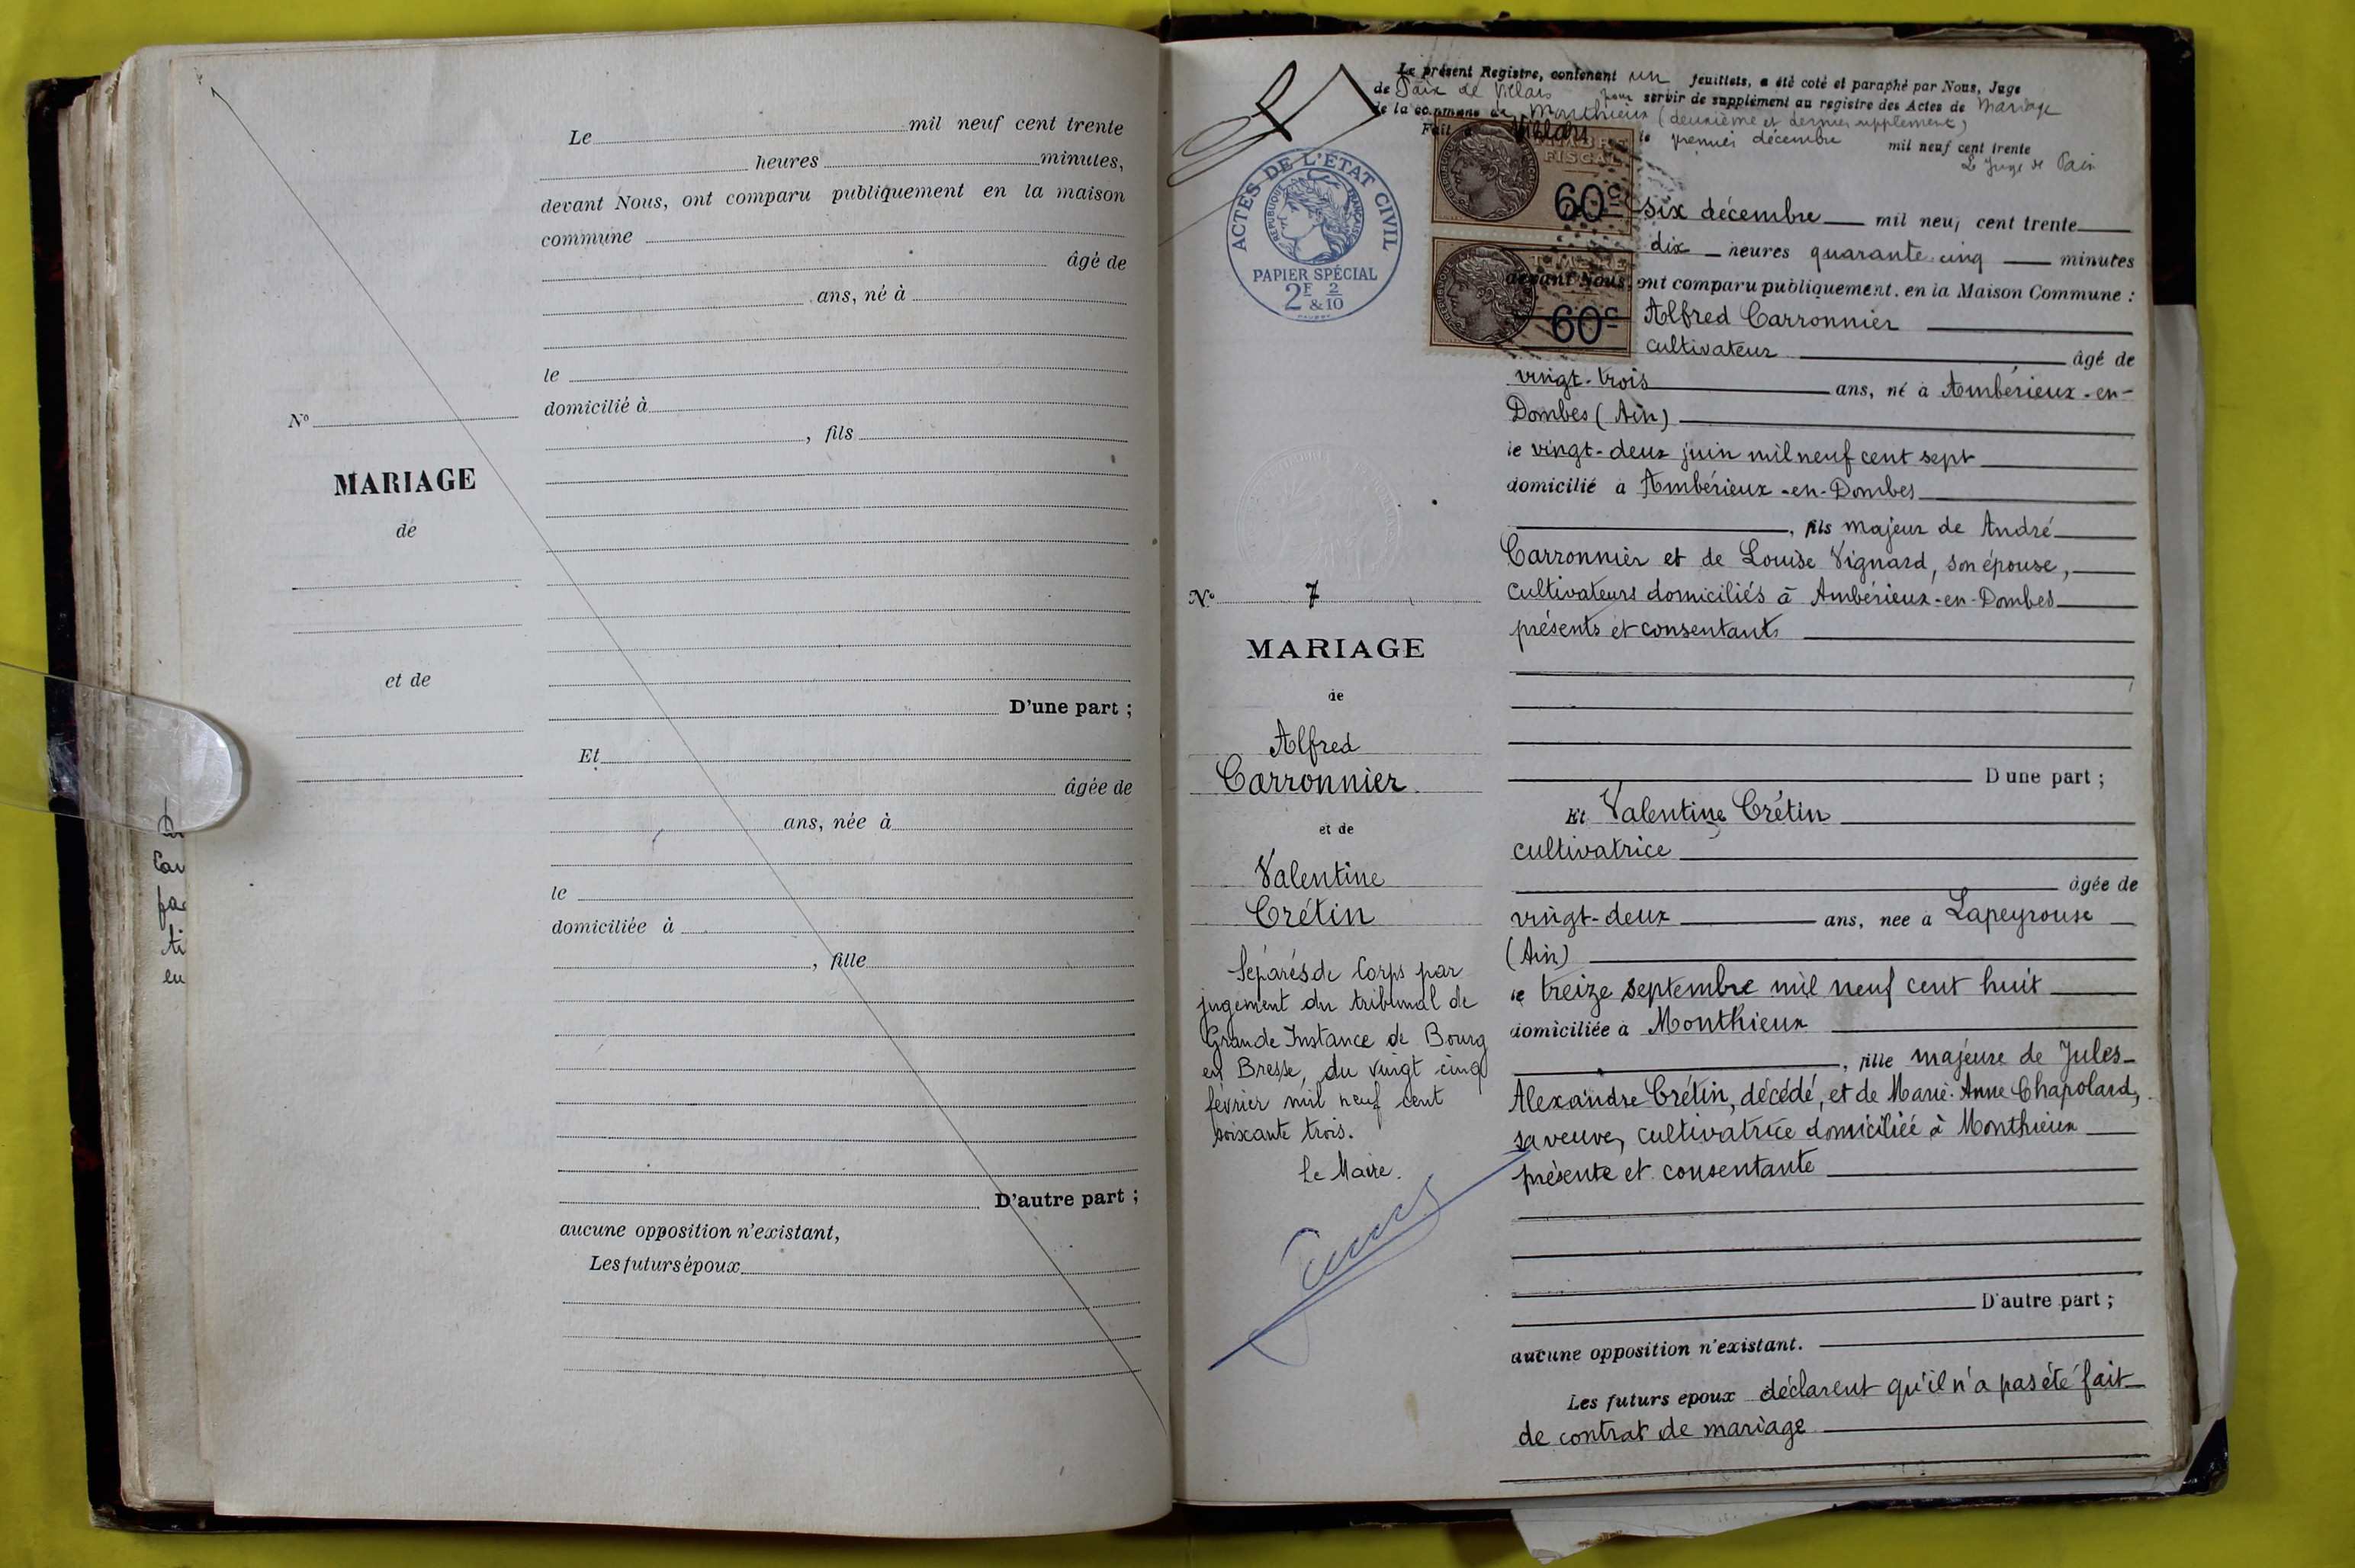 Le mil neuf cent trente
heures minutes,
devant Nous, ont comparu publiquement en la maison
commune
âgé de
ans, né à
le
domicilié à
, fils
D'une part ;
Et
âgée de
ans, née à
le
domiciliée à
, fille
D'autre part ;
aucune opposition n'existant,
Les futurs époux
N°
MARIAGE
de
et de
Car
pa
ti
en
Le présent Registre, contenant un feuillets, a été coté et paraphé par Nous, Juge
de Paix de Villars pour servir de supplément au registre des Actes de Mariage
de la commune de Monthieux (deuxième et dernier supplément)
Fait à Villars le premier décembre mil neuf cent trente
Le Juge de Paix
ACTES DE L'ÉTAT CIVIL
RÉPUBLIQUE FRANÇAISE
PAPIER SPÉCIAL
2F & 2/10
TIMBRE
FISCAL
60c
TIMBRE
60c
six décembre mil neuf cent trente
dix heures quarante cinq minutes
devant Nous, ont comparu publiquement, en la Maison Commune :
Alfred Carronnier
cultivateur âgé de
vingt-trois ans, né à Ambérieux-en-
Dombes (Ain)
le vingt-deux juin mil neuf cent sept
domicilié à Ambérieux-en-Dombes
, fils majeur de André
Carronnier et de Louise Vignard, son épouse,
cultivateurs domiciliés à Ambérieux-en-Dombes
présents et consentants
D'une part ;
Et Valentine Crétin
cultivatrice
âgée de
vingt-deux ans, née à Lapeyrouse
(Ain)
le treize septembre mil neuf cent huit
domiciliée à Monthieux
, fille majeure de Jules-
Alexandre Crétin, décédé, et de Marie-Anne Chapolard,
sa veuve, cultivatrice domiciliée à Monthieux
présente et consentante
D'autre part ;
aucune opposition n'existant.
Les futurs époux déclarent qu'il n'a pas été fait
de contrat de mariage
N° 7
MARIAGE
de
Alfred
Carronnier.
et de
Valentine
Crétin
Séparés de Corps par
jugement du tribunal de
Grande Instance de Bourg
en Bresse, du vingt cinq
février mil neuf cent
soixante trois.
Le Maire.